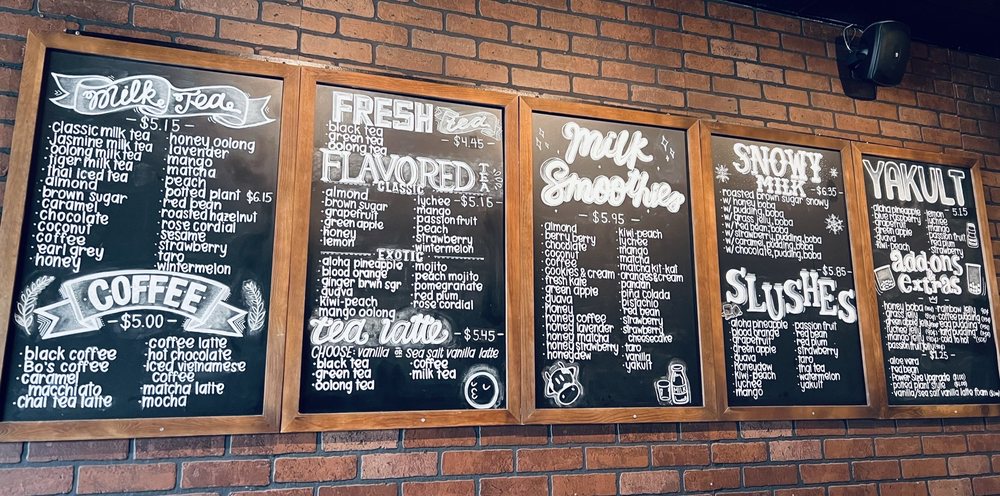 Milk Tea
- $5.15 -
·classic milk tea
·jasmine milk tea
·oolong milk tea
·tiger milk tea
·thai iced tea
·almond
·brown sugar
·caramel
·chocolate
·coconut
·coffee
·earl grey
·honey
·honey oolong
·lavender
·mango
·matcha
·peach
·potted plant $6.15
·red bean
·roasted hazelnut
·rose cordial
·sesame
·strawberry
·taro
·wintermelon
COFFEE
- $5.00 -
·black coffee
·Bo's coffee
·caramel
macchiato
·chai tea latte
·coffee latte
·hot chocolate
·iced vietnamese
coffee
·matcha latte
·mocha
FRESH tea
- $4.45 -
·black tea
·green tea
·oolong tea
FLAVORED TEA
CLASSIC
- $5.15 -
·almond
·brown sugar
·grapefruit
·green apple
·honey
·lemon
·lychee
·mango
·passion fruit
·peach
·strawberry
·wintermelon
EXOTIC
·aloha pineapple
·blood orange
·ginger brwn sgr
·guava
·kiwi-peach
·mango oolong
·mojito
·peach mojito
·pomegranate
·red plum
·rose cordial
tea latte - $5.45 -
CHOOSE: vanilla OR sea salt vanilla latte
·black tea
·green tea
·oolong tea
·coffee
·milk tea
Milk
Smoothies
- $5.95 -
·almond
·berry berry
·chocolate
·coconut
·coffee
·cookies & cream
·fresh kale
·green apple
·guava
·honey
·honey coffee
·honey lavender
·honey matcha
·honeydew
·kiwi-peach
·lychee
·mango
·matcha
·matcha kit-kat
·oranges&cream
·pandan
·piña colada
·pistachio
·red bean
·strawberry
·strawberry
cheesecake
·taro
·vanilla
·yakult
SNOWY
MILK - $6.35
roasted brown sugar snowy
w/ honey boba
w/ pudding, boba
w/ grass jelly, boba
w/ red bean, boba
w/ strawberry, pudding, boba
w/ caramel, pudding, boba
w/ chocolate, pudding, boba
- $5.85 -
SLUSHES
·aloha pineapple
·blood orange
·grapefruit
·green apple
·guava
·honeydew
·kiwi-peach
·lychee
·mango
·passion fruit
·red bean
·red plum
·strawberry
·taro
·thai tea
·watermelon
·yakult
YAKULT
5.15
·aloha pineapple
·blue raspberry
·grapefruit
·green apple
·kiwi-peach
·lemon
·lychee
·mango
·peach
·red plum
·strawberry
add-ons
extras
·honey boba
·grass jelly
·rainbow jelly
·coffee pudding
·egg pudding
$1.25 -
·aloe vera
·red bean
·Power Size Upgrade
·potted plant style
·vanilla/sea salt vanilla latte foam